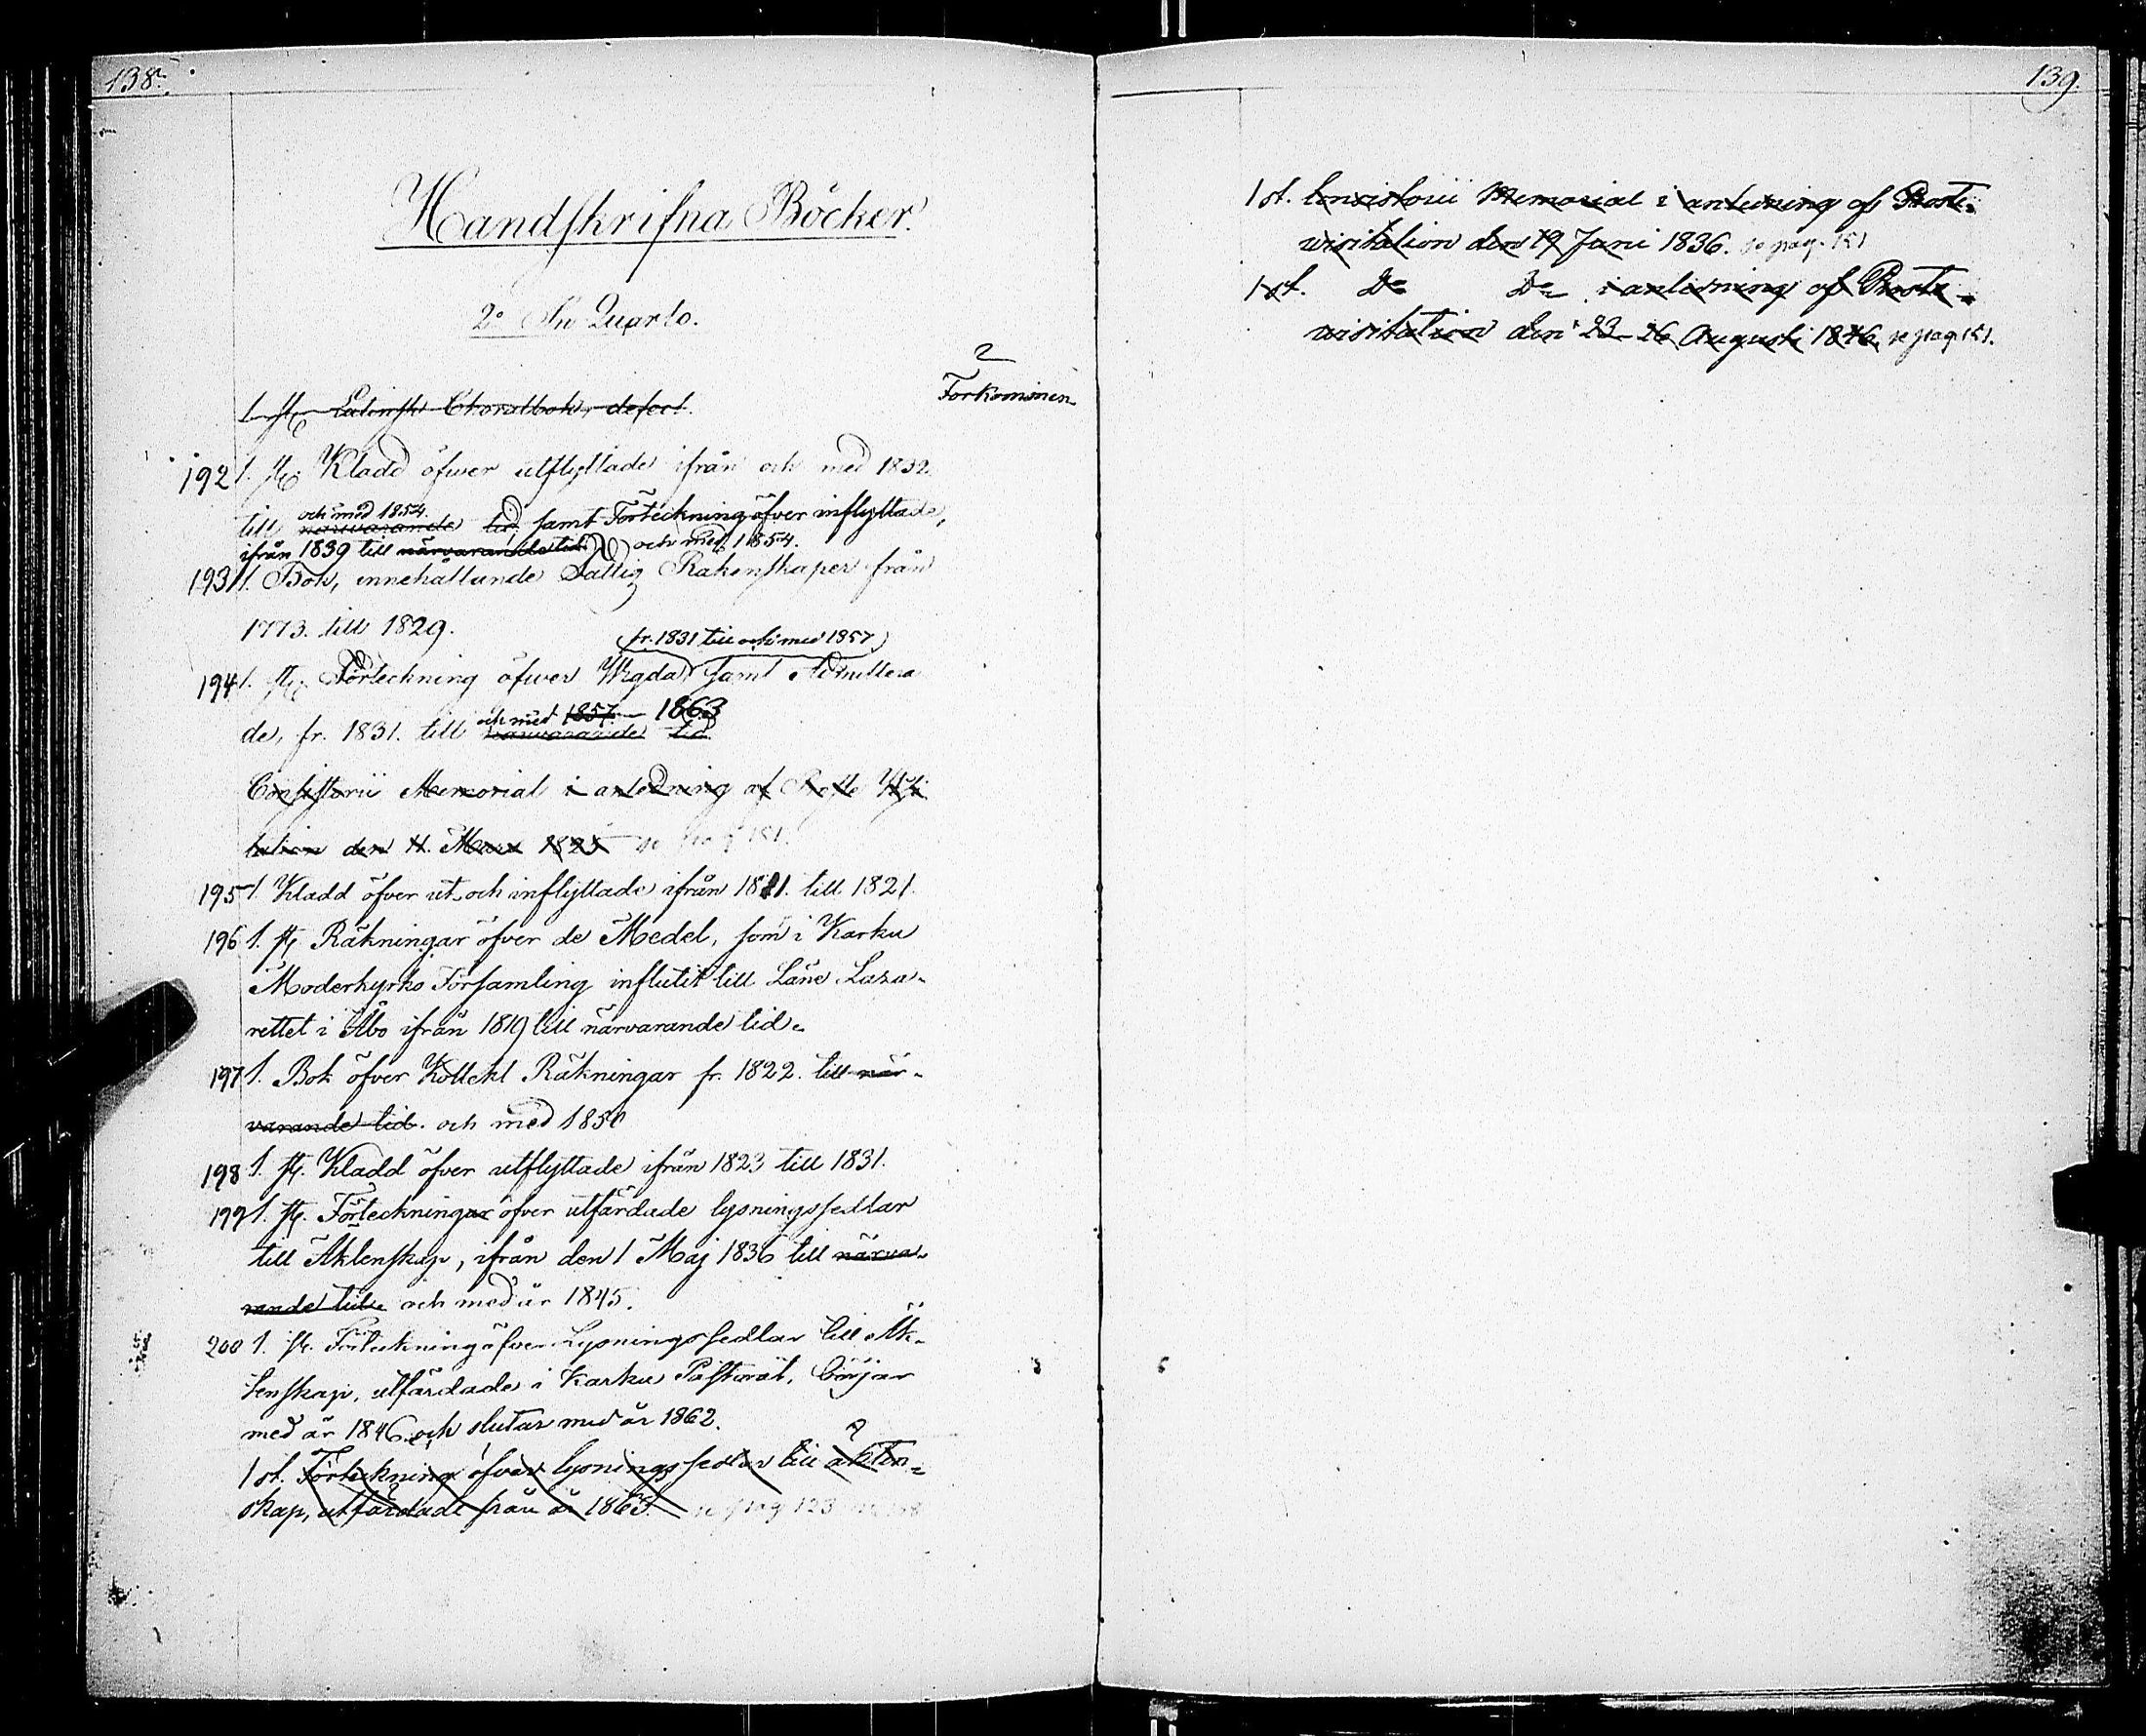 138.
Handskrifna Böcker.
2o In Quarto.
2
Förkommen
1 st. Latinsk Choralbok, defect.
192 1. st. Kladd öfwer utflyttade ifrån och med 1832.
och med 1854.
till närwarande tid, samt Förteckning öfver inflyttade,
ifrån 1839 till närvarande tid och med 1854.
193 1. Bok, innehållande Fattig Räkenskaper från
1773. till 1829.
(fr. 1831 till och med 1857)
194 1. st. Förteckning öfwer Wigda, samt Admittera
och med 1857. 1863
de, fr. 1831. till närwarande tid
Consistorii Memorial i anledning af Proste Wisi
tation den 11. Mars 1825 se pag 151.
195 1. Kladd öfver ut och inflyttade ifrån 1811. till 1821.
196 1. st. Räkningar öfver de Medel, som i Karku
Moderkyrko Församling influtit till Läne Laza-
rettet i Åbo ifrån 1819 till närvarande tid.
197 1. Bok öfver Kollekt Räkningar fr. 1822. till när-
varande tid. och med 1850
198 1. st. Kladd öfver utflyttade ifrån 1823 till 1831.
199 1. st. Förteckningar öfver utfärdade lysningssedlar
till Äktenskap, ifrån den 1 Maj 1836 till närva-
rande tid. och med år 1845.
200 1. st. Förteckning öfver Lysningssedlar till Äk-
tenskap, utfärdade i Karku Pastorat. Börjar
med år 1846. och slutar med år 1862.
1 st. Förteckning öfver lysningssedlar till äkten-
skap, utfärdade från år 1863. se pag 123
139.
1 st. Consistorii Memorial i anledning af Prosts-
wisitation den 19 Juni 1836. se pag. 151
1 st. Do Do i anledning af Prosts-
wisitation den 23-26 Augusti 1846. se pag 151.